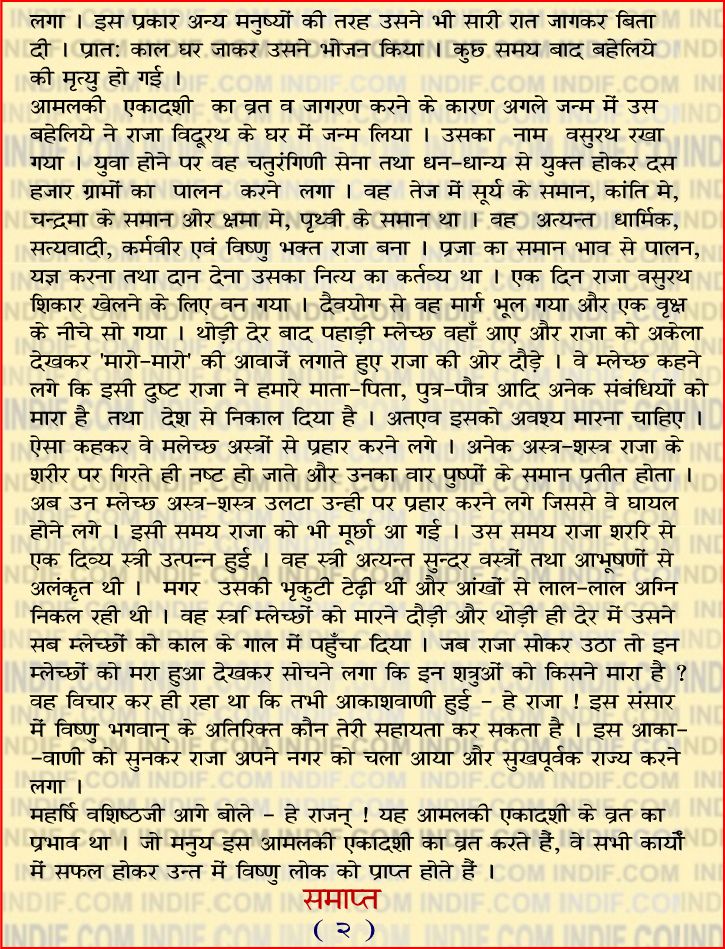 लगा । इस प्रकार अन्य मनुष्यों की तरह उसने भी सारी रात जागकर बिता
दी । प्रातः काल घर जाकर उसने भोजन किया । कुछ समय बाद बहेलिये
की मृत्यु हो गई ।
आमलकी एकादशी का व्रत व जागरण करने के कारण अगले जन्म में उस
बहेलिये ने राजा विदूरथ के घर में जन्म लिया । उसका नाम वसुरथ रखा
गया । युवा होने पर वह चतुरंगिणी सेना तथा धन-धान्य से युक्त होकर दस
हजार ग्रामों का पालन करने लगा । वह तेज में सूर्य के समान, कांति मे,
चन्द्रमा के समान ओर क्षमा मे, पृथ्वी के समान था । वह अत्यन्त धार्मिक,
सत्यवादी, कर्मवीर एवं विष्णु भक्त राजा बना । प्रजा का समान भाव से पालन,
यज्ञ करना तथा दान देना उसका नित्य का कर्तव्य था । एक दिन राजा वसुरथ
शिकार खेलने के लिए वन गया । दैवयोग से वह मार्ग भूल गया और एक वृक्ष
के नीचे सो गया । थोड़ी देर बाद पहाड़ी म्लेच्छ वहाँ आए और राजा को अकेला
देखकर 'मारो-मारो' की आवाजें लगाते हुए राजा की ओर दौड़े । वे म्लेच्छ कहने
लगे कि इसी दुष्ट राजा ने हमारे माता-पिता, पुत्र-पौत्र आदि अनेक संबंधियों को
मारा है तथा देश से निकाल दिया है । अतएव इसको अवश्य मारना चाहिए
ऐसा कहकर वे मलेच्छ अस्त्रों से प्रहार करने लगे । अनेक अस्त्र-शस्त्र राजा के
शरीर पर गिरते ही नष्ट हो जाते और उनका वार पुष्पों के समान प्रतीत होता ।
अब उन म्लेच्छ अस्त्र-शस्त्र उलटा उन्ही पर प्रहार करने लगे जिससे वे घायल
होने लगे । इसी समय राजा को भी मूर्छा आ गई । उस समय राजा शररि से
एक दिव्य स्त्री उत्पन्न हुई । वह स्त्री अत्यन्त सुन्दर वस्त्रों तथा आभूषणों से
अलंकृत थी । मगर उसकी भृकुटी टेढ़ी थीं और आंखों से लाल-लाल अग्नि
निकल रही थी । वह स्त्रा म्लेच्छों को मारने दौड़ी और थोड़ी ही देर में उसने
सब म्लेच्छों को काल के गाल में पहुँचा दिया । जब राजा सोकर उठा तो इन
म्लेच्छों को मरा हुआ देखकर सोचने लगा कि इन शत्रुओं को किसने मारा है ?
वह विचार कर ही रहा था कि तभी आकाशवाणी हुई - हे राजा ! इस संसार
में विष्णु भगवान् के अतिरिक्त कौन तेरी सहायता कर सकता है । इस आका-
-वाणी को सुनकर राजा अपने नगर को चला आया और सुखपूर्वक राज्य करने
लगा ।
महर्षि वशिष्ठजी आगे बोले - हे राजन् ! यह आमलकी एकादशी के व्रत का
प्रभाव था । जो मनुय इस आमलकी एकादशी का व्रत करते हैं, वे सभी कार्यों
में सफल होकर उन्त में विष्णु लोक को प्राप्त होते हैं ।
समाप्त
( २ )